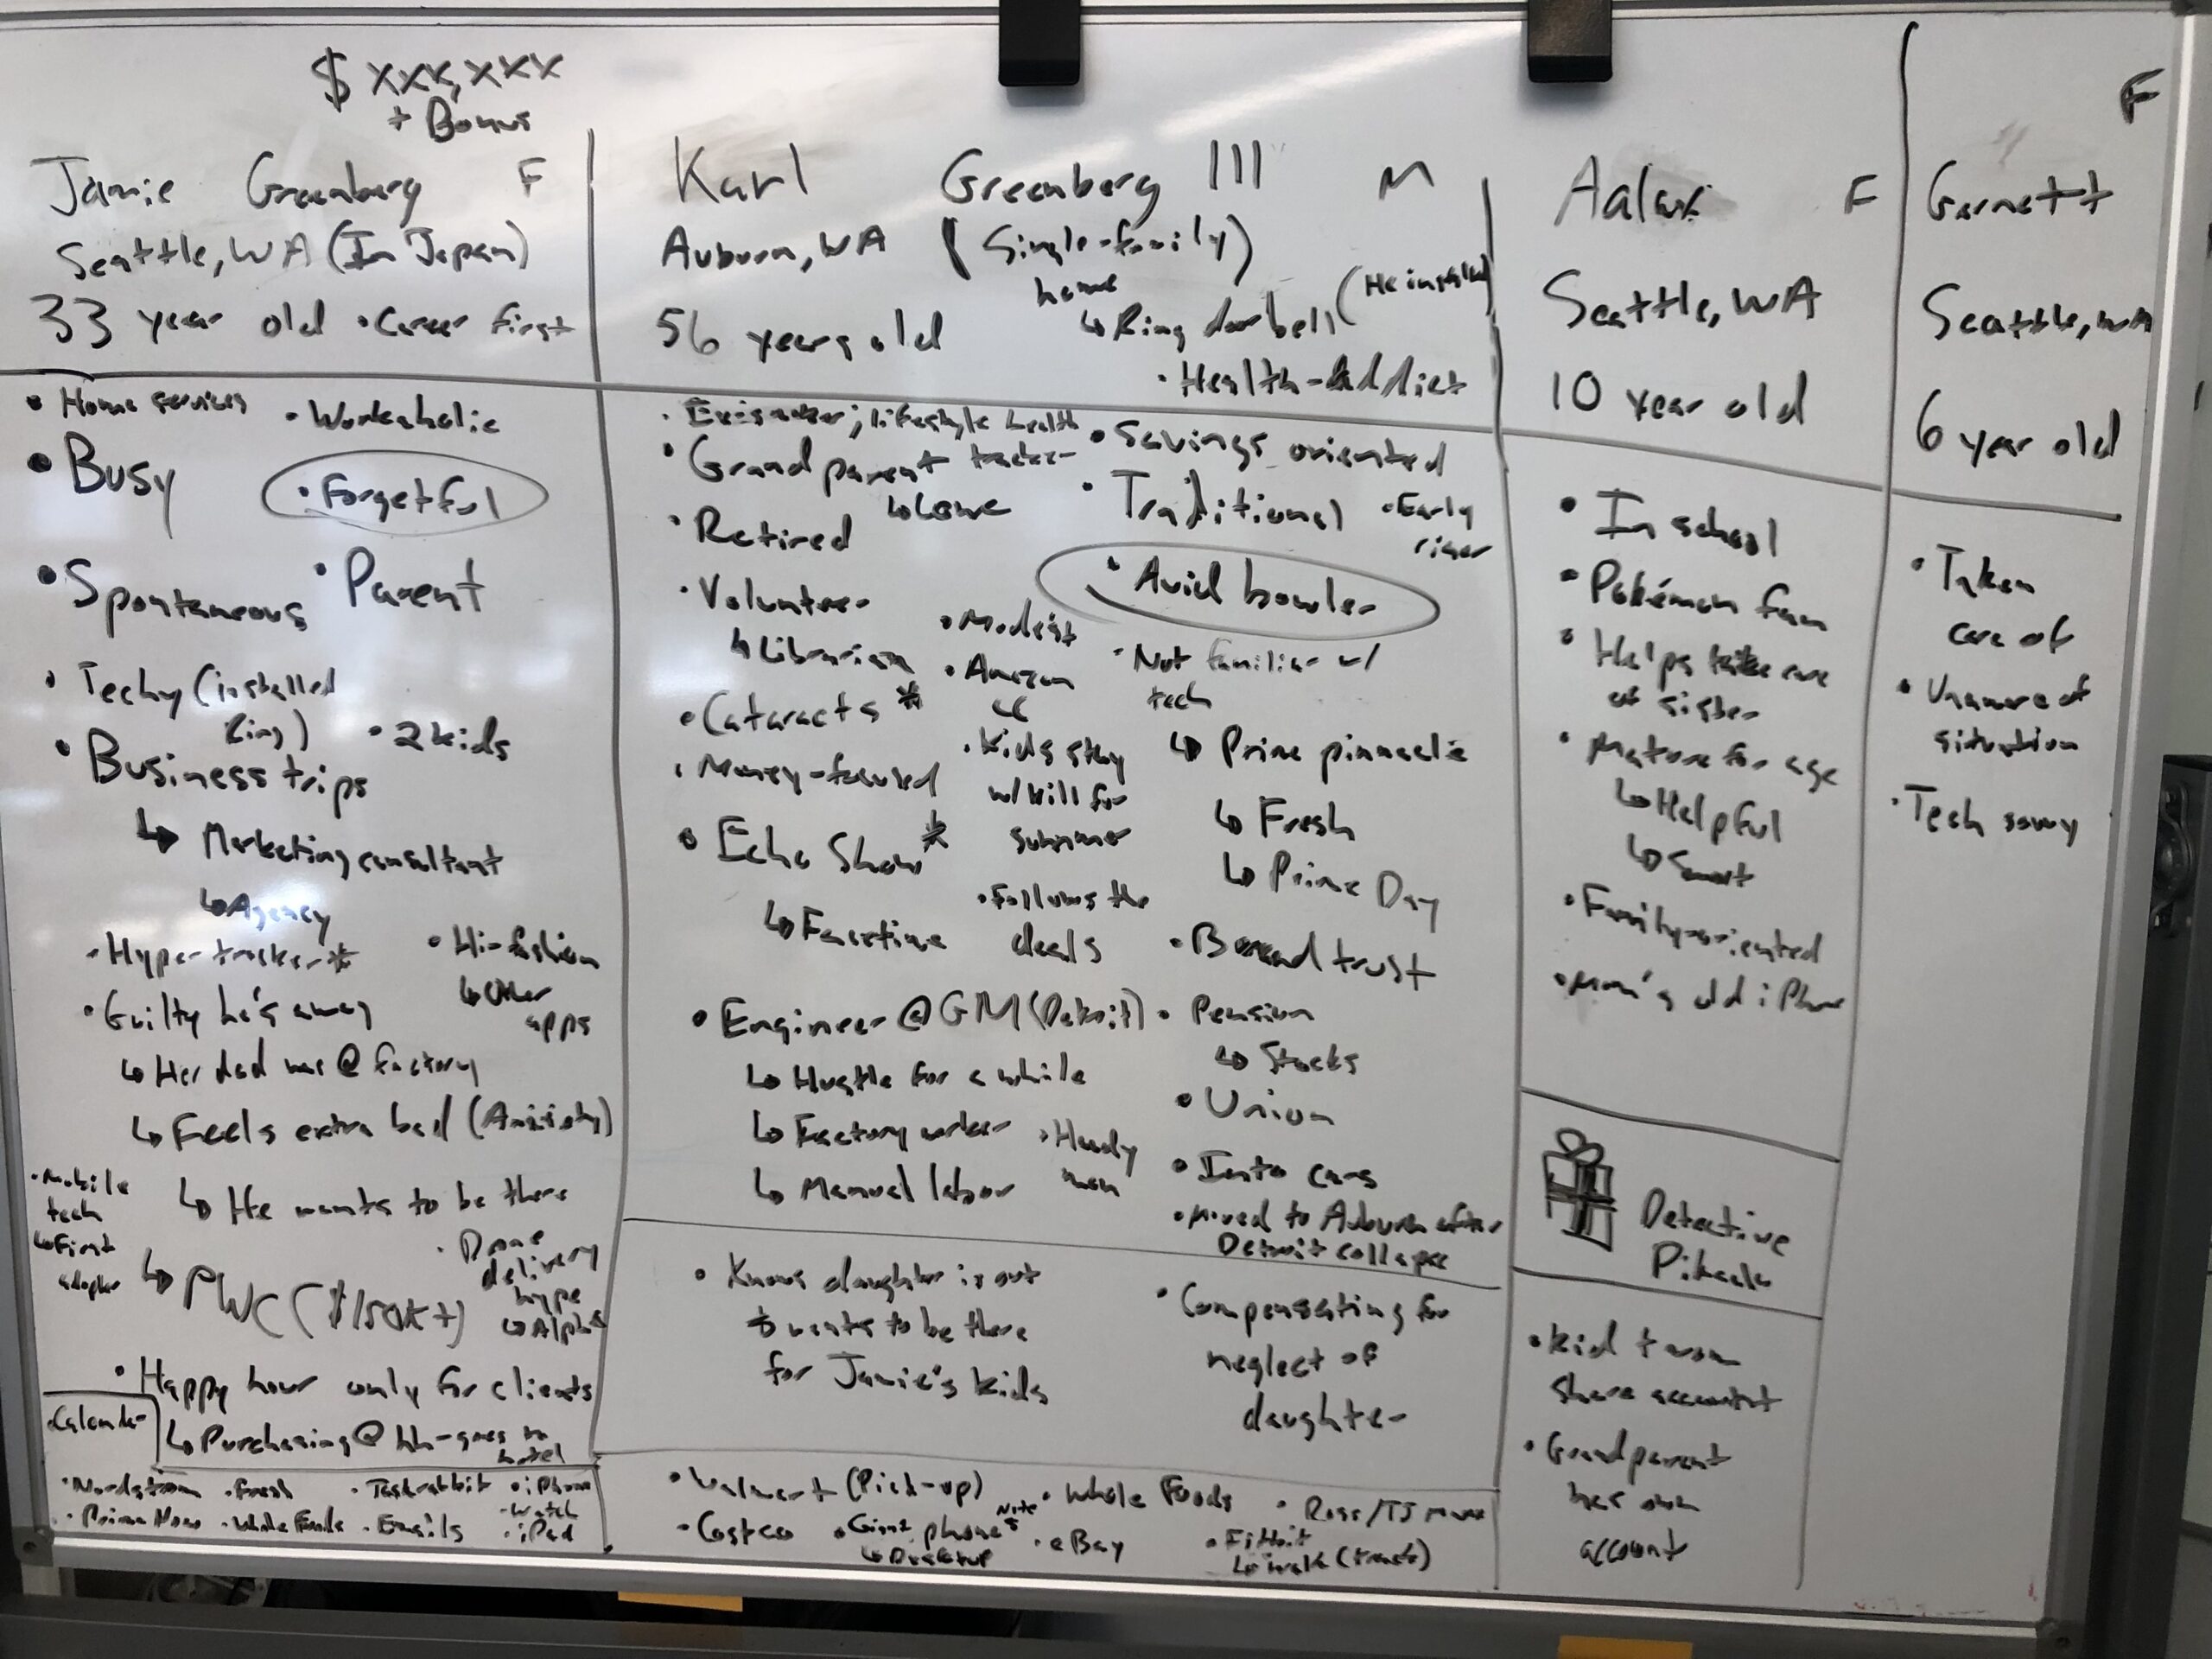 $ xxx,xxx
+ Bonus
Jamie Greenberg F
Seattle, WA (In Japan)
33 year old • Career first
• Home services • Workaholic
• Busy • Forgetful
• Spontaneous • Parent
• Techy (installed
Ring) • 2 kids
• Business trips
↳ Marketing consultant
↳ Agency
• Hyper tracker*
• Hi-fashion
↳ Other
apps
• Guilty he's away
↳ Her dad was @ factory
↳ Feels extra bad (Anxiety)
↳ He wants to be there
• Mobile
tech
↳ First
adopter
↳ PWC ($150K+)
• Drone
delivery
hype
↳ Alpha
• Happy hour only for clients
↳ Purchasing @ hh - goes to
hotel
Calendar
• Nordstrom • Fresh • Taskrabbit • iPhone
• Prime Now • Whole Foods • Emails
• Watch
• iPad
Karl Greenberg III M
Auburn, WA (Single-family)
home
56 years old
↳ Ring doorbell
• Health-Addict
lifestyle health
• Grandparent tracker
↳ Love
• Retired
• Volunteer
↳ Librarian
• Cataracts *
• Money-focused
• Echo Show*
↳ Facetime
• Savings oriented
• Traditional • Early
riser
• Avid bowler
• Modest
• Amazon
CC
• Kids stay
w/ for
summer
• Follows the
deals
• Not familiar w/
tech
↳ Prime pinnacle
↳ Fresh
↳ Prime Day
• Brand trust
• Engineer @ GM (Detroit)
↳ Hustle for a while
↳ Factory worker
↳ Manual labor
• Handy
man
• Pension
↳ Stocks
• Union
• Into cars
• Moved to Auburn after
Detroit collapse
• Knows daughter is out
& wants to be there
for Jamie's kids
• Compensating for
neglect of
daughter
• Walmart (Pick-up) • Whole Foods • Ross/TJ Maxx
• Costco phone Note 5 • eBay • Fitbit
↳ Desktop
↳ walk (track)
F
Seattle, WA
10 year old
• In school
• Pokémon fan
• Helps take care
of sister
• Mature for age
↳ Helpful
↳ Smart
• Family-oriented
• Mom's old iPhone
Detective
Pikachu
• Kid + mom
share account
• Grandparent
has own
account
F
Garnett
Seattle, WA
6 year old
• Taken
care of
• Unaware of
situation
• Tech savvy